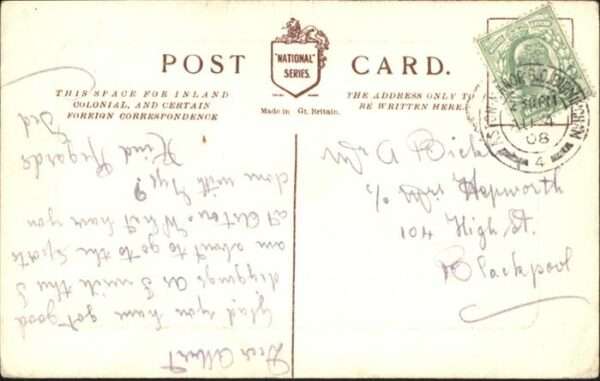 POST CARD.
"NATIONAL"
SERIES.
THIS SPACE FOR INLAND
COLONIAL, AND CERTAIN
FOREIGN CORRESPONDENCE
Made in Gt. Britain.
THE ADDRESS ONLY TO
BE WRITTEN HERE.
ASTON MANOR S.O. BIRMINGHAM
4
08
4
Mr A Bick
c/o Mrs Hepworth
104 High St.
Blackpool
Dear Albert
Glad you have got good
diggings. As I write this I
am about to go to the Sports
at Aston. What have you
done with
Kind Regards
Ted